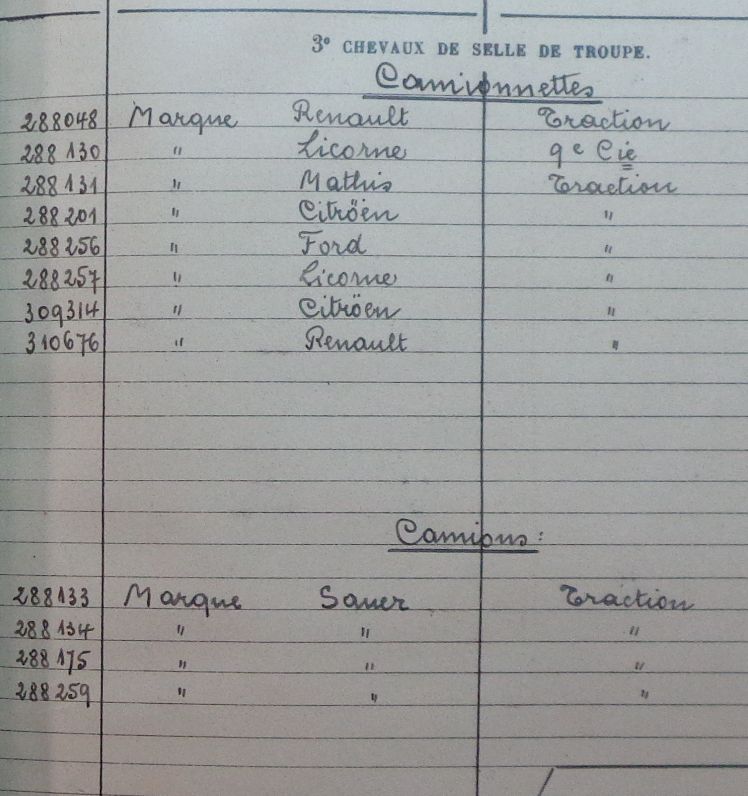 3° CHEVAUX DE SELLE DE TROUPE.
Camionnettes
288048 Marque Renault Traction
288130 " Licorne 9e Cie
288131 " Mathis Traction
288201 " Citröën "
288256 " Ford "
288257 " Licorne "
309314 " Citröën "
310676 " Renault "
Camions :
288133 Marque Saner Traction
288134 " " "
288175 " " "
288259 " " "